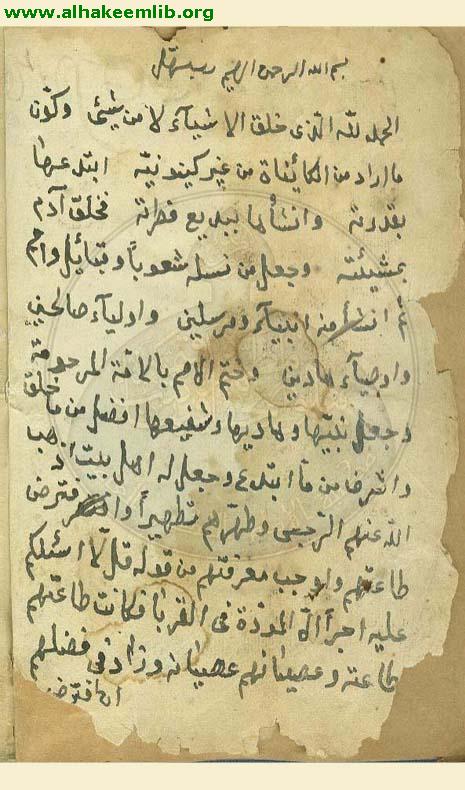 www.alhakeemlib.org
بسم الله الرحمن الرحيم رب سهّل
الحمد لله الّذى خلق الاشيآء لا من شيئى وكوّن
ما اراد من الكائيناة من غير كينونيّه ابتدعها
بقدرته وانشأها ببديع فطرته فخلق آدم
بمشيئته وجعل من نسله شعوباً وقبائيل وامم
ثمّ انشأ منه انبيآء ومرسلين واوليآء صالحين
واوصيآء هادين وختم الامم بالامّة المرحومة
وجعل نبيّها وهاديها وشفيعها افضل من ما خلق
واشرف من مّا ابتدع وجعل له اهل بيت اذهب
الله عنهم الرّجس وطهّرهم تطهيراً وافترض
طاعتهم واوجب معرفتهم من قوله قل لّا اسئلكم
عليه اجراً الّا المودّة فى القربا فكانت طاعتهم
طاعته وعصيانهم عصيانه وزاد فى فضلهم